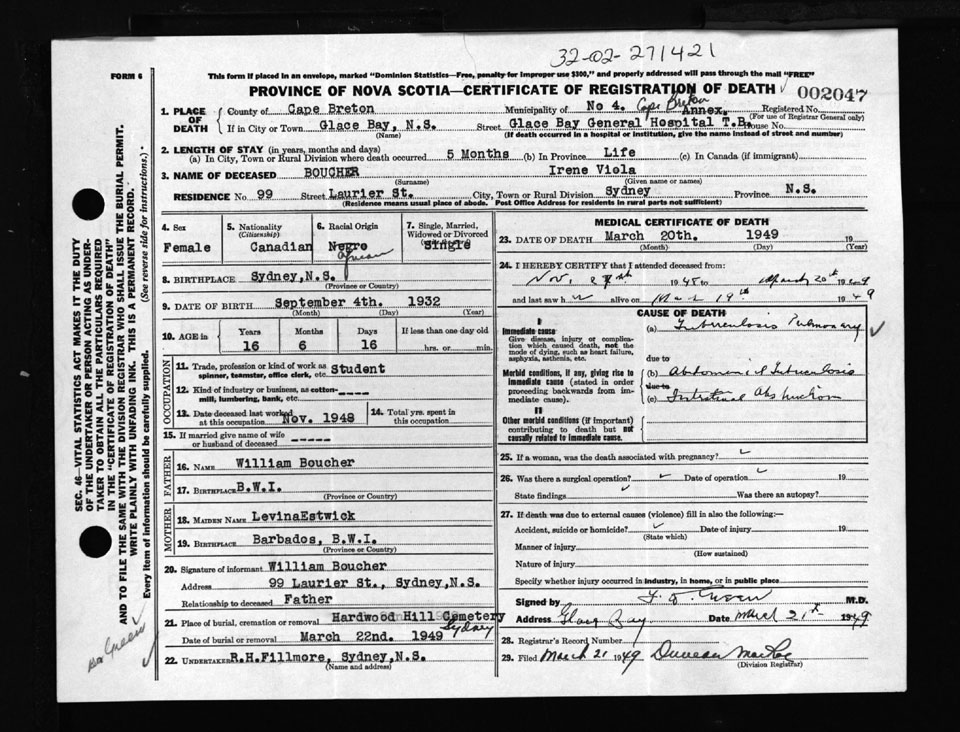 32-02-271421
FORM 6
This form if placed in an envelope, marked "Dominion Statistics—Free, penalty for improper use $300," and properly addressed will pass through the mail "FREE"
PROVINCE OF NOVA SCOTIA—CERTIFICATE OF REGISTRATION OF DEATH ✓ 002047
1. PLACE OF DEATH { County of Cape Breton Municipality of No 4. Cape Breton Registered No.
(For use of Registrar General only)
If in City or Town Glace Bay, N.S. Street Glace Bay General Hospital T.B. Annex. House No.
(Name) (If death occurred in a hospital or institution, give the name instead of street and number)
2. LENGTH OF STAY (in years, months and days)
(a) In City, Town or Rural Division where death occurred 5 Months (b) In Province Life (c) In Canada (if immigrant)
3. NAME OF DECEASED BOUCHER Irene Viola
(Surname) (Given name or names)
RESIDENCE No 99 Street Laurier St. City, Town or Rural Division Sydney Province N.S.
(Residence means usual place of abode. Post Office Address for residents in rural parts not sufficient)
4. Sex Female
5. Nationality (Citizenship) Canadian
6. Racial Origin Negro
7. Single, Married, Widowed or Divorced Single
8. BIRTHPLACE Sydney,N.S.
(Province or Country)
9. DATE OF BIRTH September 4th. 1932
(Month) (Day) (Year)
10. AGE in { Years 16 Months 6 Days 16 If less than one day old
hrs. or min.
OCCUPATION
11. Trade, profession or kind of work as spinner, teamster, office clerk, etc. Student
12. Kind of industry or business, as cotton-mill, lumbering, bank, etc. ----
13. Date deceased last worked at this occupation Nov. 1948
14. Total yrs. spent in this occupation
15. If married give name of wife or husband of deceased -----
FATHER
16. NAME William Boucher
17. BIRTHPLACE B.W.I.
(Province or Country)
MOTHER
18. MAIDEN NAME LevinaEstwick
19. BIRTHPLACE Barbados, B.W.I.
(Province or Country)
20. Signature of informant William Boucher
Address 99 Laurier St., Sydney,N.S.
Relationship to deceased Father
21. Place of burial, cremation or removal Hardwood Hill Cemetery
Sydney
Date of burial or removal March 22nd. 1949
22. UNDERTAKER R.H.Fillmore, Sydney,N.S.
(Name and address)
MEDICAL CERTIFICATE OF DEATH
23. DATE OF DEATH March 20th. 1949 19
(Month) (Day) (Year)
24. I HEREBY CERTIFY that I attended deceased from:
Nov. 1948 to March 20th 1949
and last saw h alive on March 19th 1949
CAUSE OF DEATH
I
Immediate cause
Give disease, injury or complication which caused death, not the mode of dying, such as heart failure, asphyxia, asthenia, etc.
(a) Tuberculosis Pulmonary ✓
due to
Morbid conditions, if any, giving rise to immediate cause (stated in order proceeding backwards from immediate cause).
(b) Abdominal Tuberculosis
due to
(c) Intestinal Obstruction
II
Other morbid conditions (if important) contributing to death but not causally related to immediate cause.
25. If a woman, was the death associated with pregnancy? ✓
26. Was there a surgical operation? ✓ Date of operation ✓ 19
State findings ✓ Was there an autopsy?
27. If death was due to external causes (violence) fill in also the following:—
Accident, suicide or homicide? ✓ Date of injury 19
(State which)
Manner of injury
(How sustained)
Nature of injury
Specify whether injury occurred in industry, in home, or in public place
Signed by M.D.
Address Glace Bay Date March 21st 1949
28. Registrar's Record Number
29. Filed March 21 1949 Duncan MacRae
(Division Registrar)
SEC. 46—VITAL STATISTICS ACT MAKES IT THE DUTY
OF THE UNDERTAKER OR PERSON ACTING AS UNDER-
TAKER TO OBTAIN ALL THE PARTICULARS REQUIRED
IN THE "CERTIFICATE OF REGISTRATION OF DEATH"
AND TO FILE THE SAME WITH THE DIVISION REGISTRAR WHO SHALL ISSUE THE BURIAL PERMIT.
WRITE PLAINLY WITH UNFADING INK. THIS IS A PERMANENT RECORD.
Every item of information should be carefully supplied. (See reverse side for instructions.)*